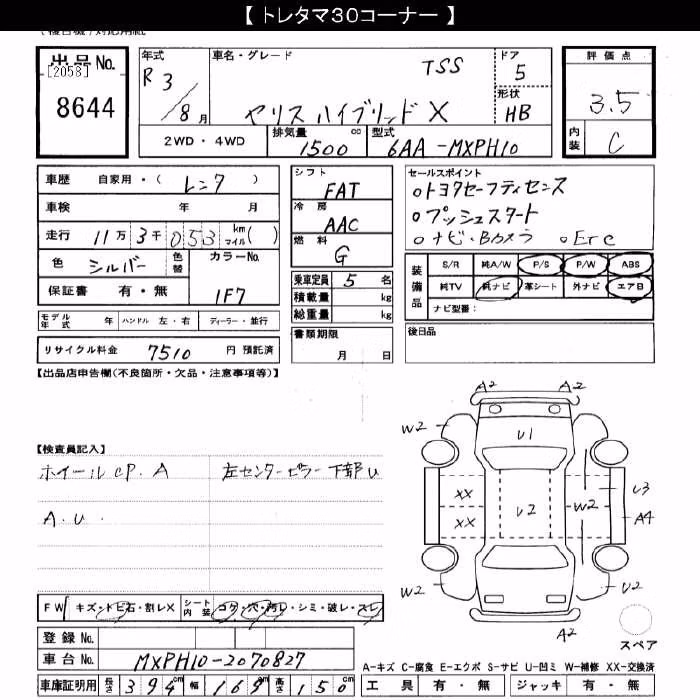 【 トレタマ30コーナー 】
出品 No.
[2058]
8644
年式
R 3 / 8 月
車名・グレード
TSS
ヤリス ハイブリッド X
ドア
5
形状
HB
評価点
3.5
内装 C
2WD ・ 4WD
排気量 1500 cc
型式 6AA-MXPH10
車歴 自家用・( レンタ )
車検 年 月
走行 11万 3千 053 km マイル( )
色 シルバー 色替
カラーNo. 1F7
保証書 有・無
モデル年式 年 ハンドル 左・右 ディーラー・並行
リサイクル料金 7510 円 預託済
シフト
FAT
冷房
AAC
燃料
G
乗車定員 5 名
積載量 kg
総重量 kg
書類期限
月 日
セールスポイント
○トヨタセーフティセンス
○プッシュスタート
○ナビ・Bカメラ ○ETC
装備品
S/R 純A/W P/S P/W ABS
純TV 純ナビ 革シート 外ナビ エアB
ナビ型番:
後日品
【出品店申告欄(不良箇所・欠品・注意事項等)】
【検査員記入】
ホイールCP. A 左センターピラー下部U
A. U.
A2 A2
W2
U1
XX
XX
U2
W2
U3
A4
W2
U2
A2
スペア
FW キズ・トビ石・割レX シート内装 コゲ・穴・汚レ・シミ・破レ・スレ
登録 No.
車台 No. MXPH10-2070827
車庫証明用 長さ 394 cm 幅 169 cm 高さ 150 cm
A-キズ C-腐食 E-エクボ S-サビ U-凹ミ W-補修 XX-交換済
工具 有・無 ジャッキ 有・無